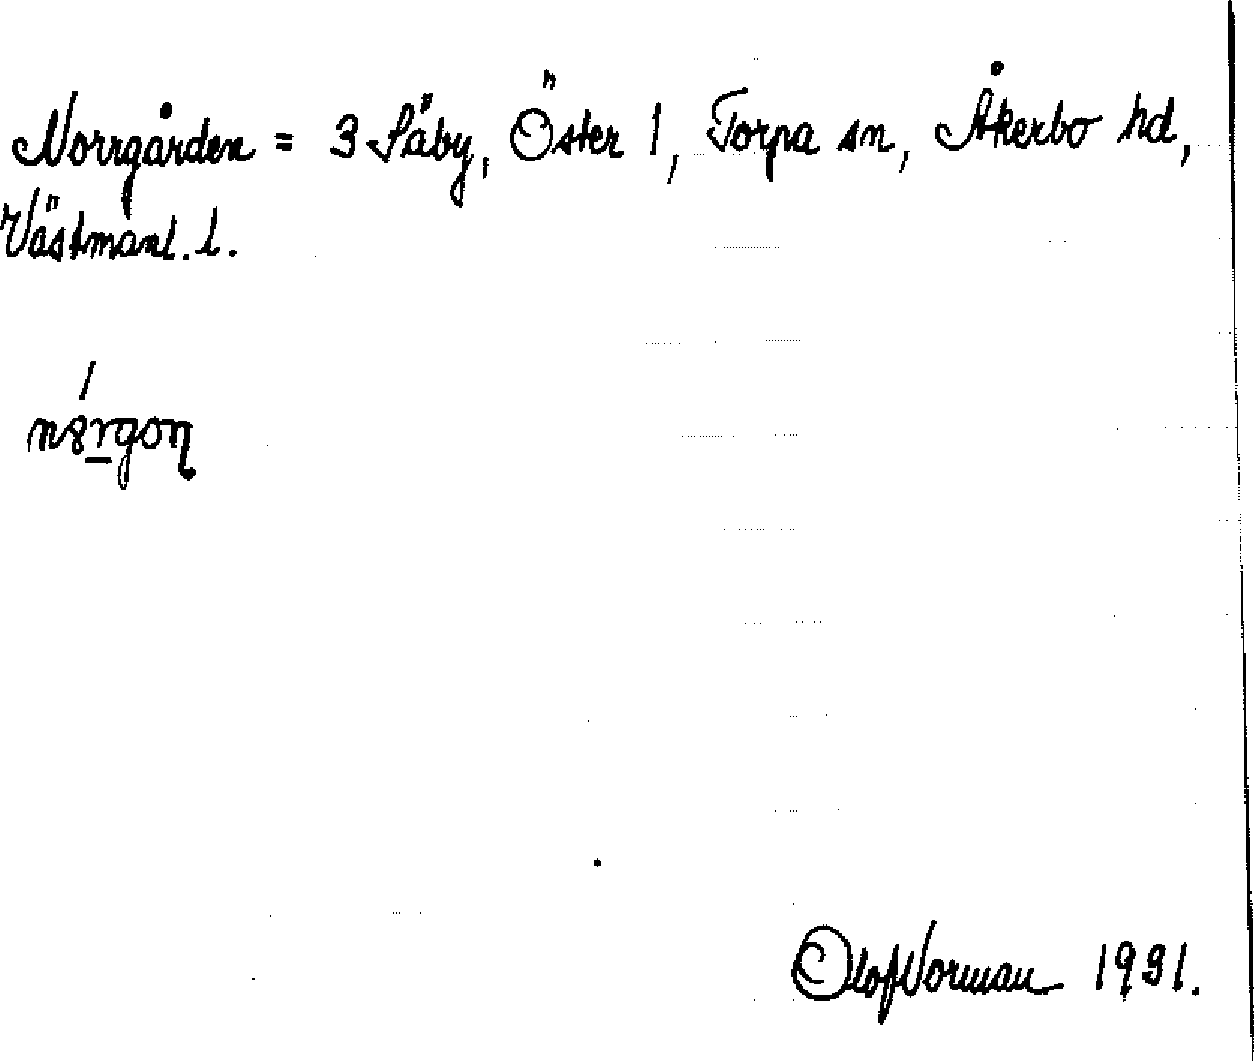 Norrgården = 3 Säby, Öster 1, Torpa sn, Åkerbo hd,
Västmanl. l.
Olof Norman 1931.